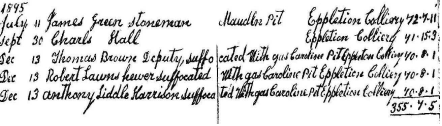 1895
July 11 James Green stoneman Maudlin Pit Eppleton Colliery 72-7-11
Sept 30 Charls Hall Eppleton Colliery 41-15-3
Dec 13 Thomas Brown Deputy, suffocated With gas Caroline Pit Eppleton Colliery 70-8-1
Dec 13 Robert Lawns hewer suffocated With gas Caroline Pit Eppleton Colliery 70-8-1
Dec 13 Anthony Liddle Harrison suffocated With gas Caroline Pit Eppleton Colliery 70-8-1
355-7-5